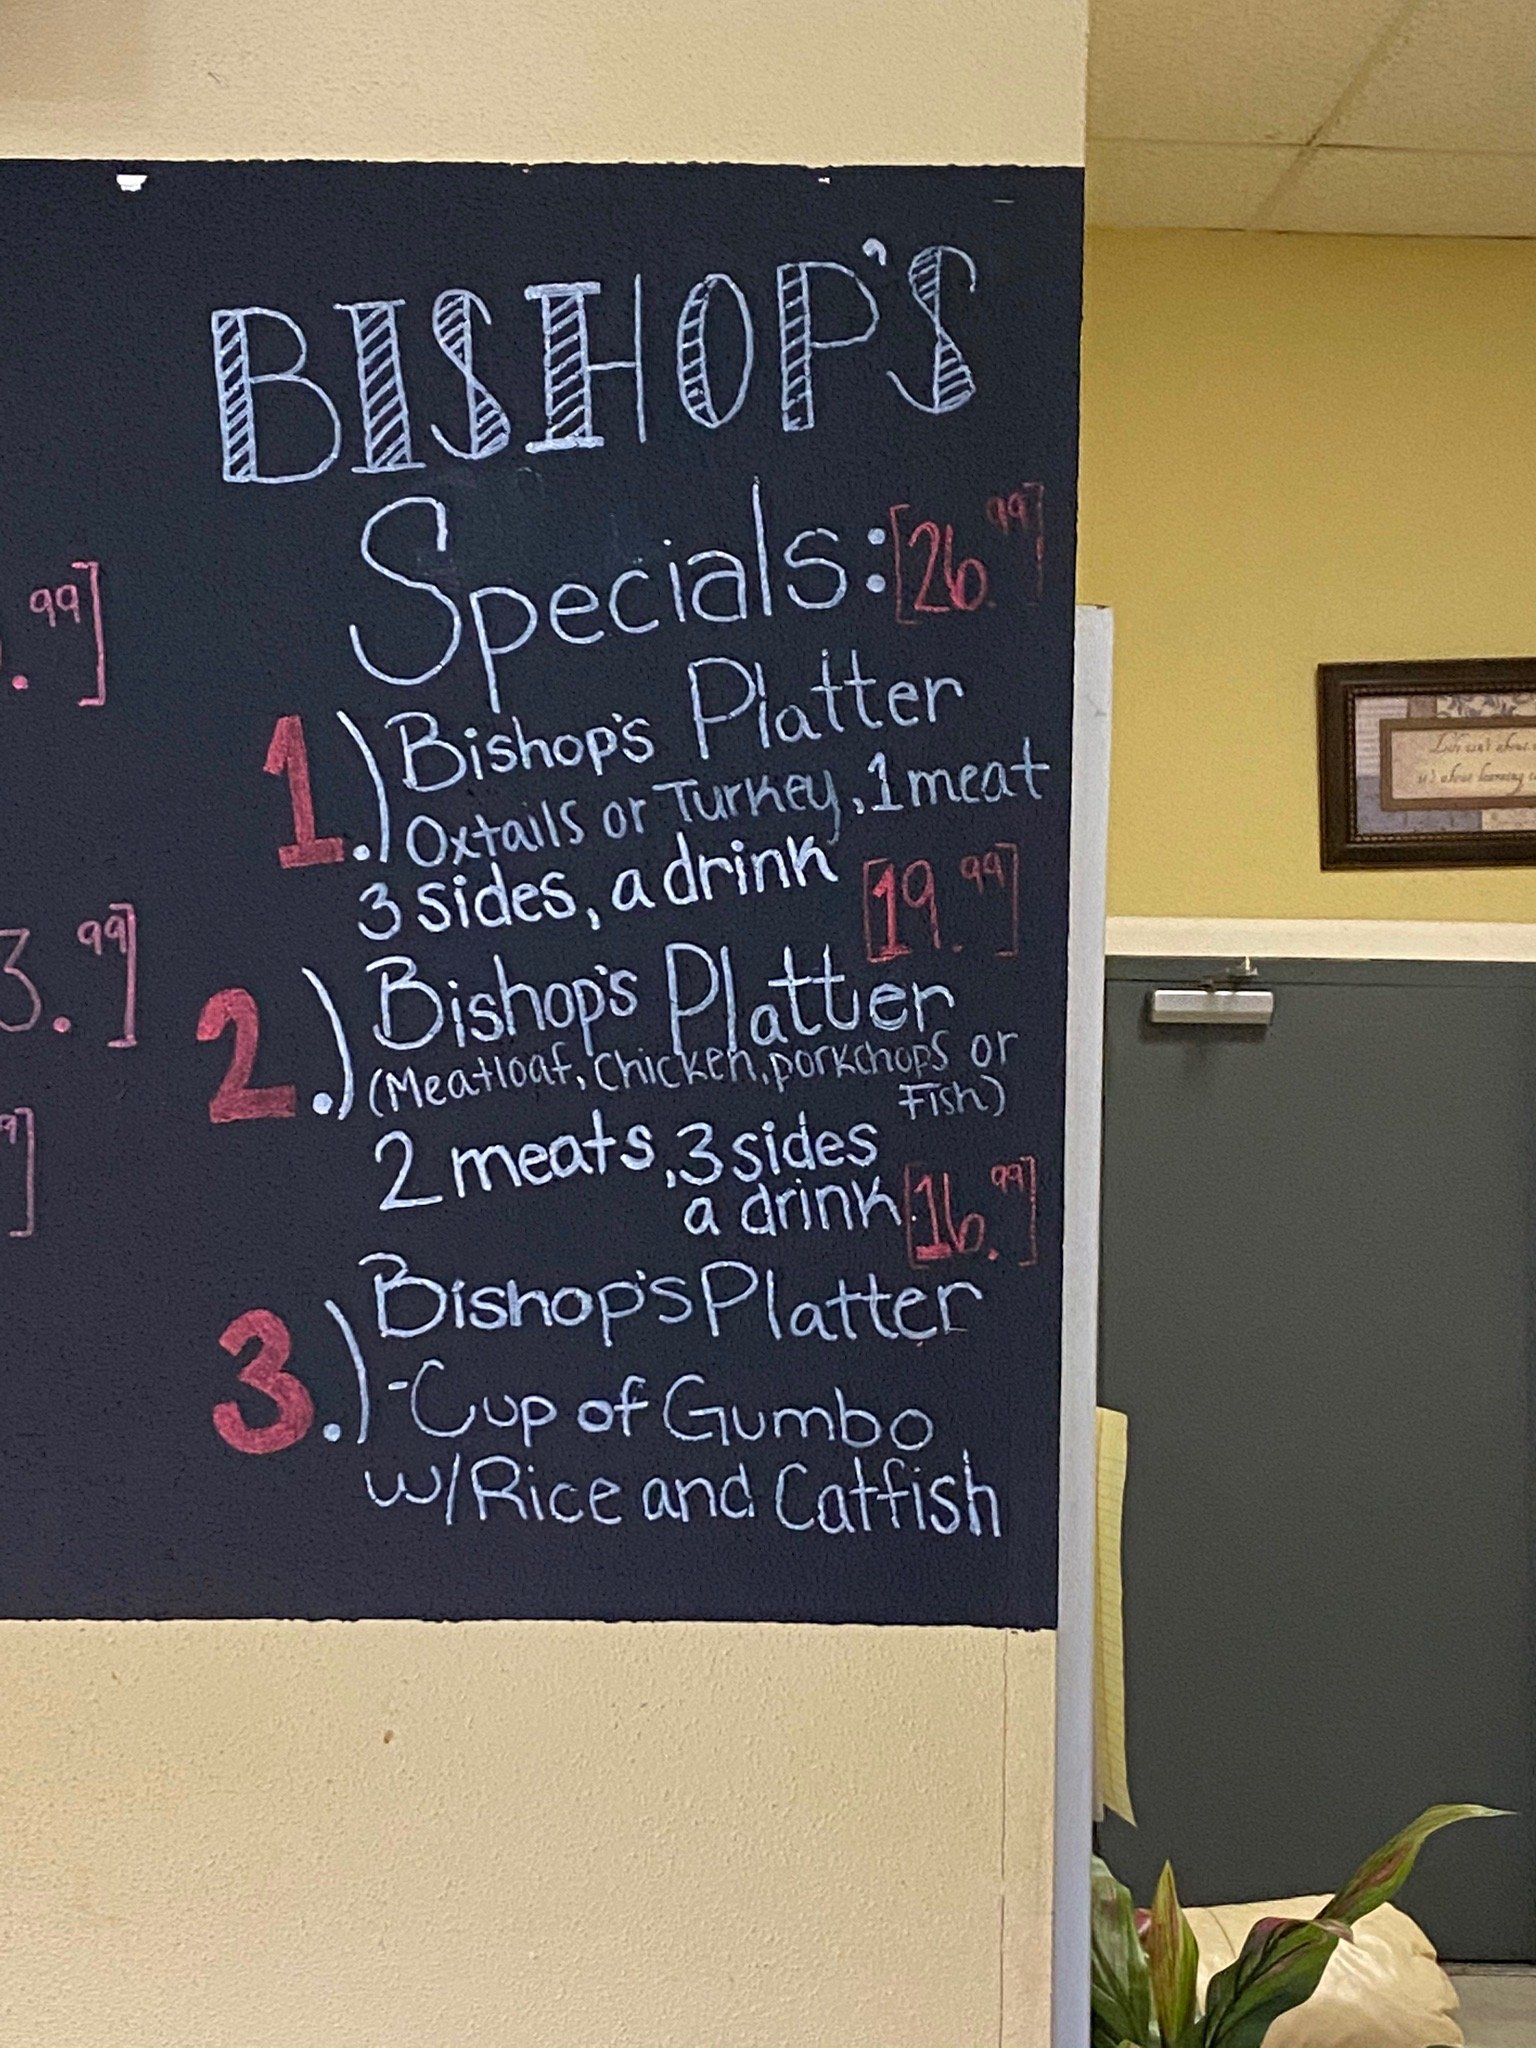 BISHOP'S
Specials: [26.99]
1.) Bishop's Platter
Oxtails or Turkey, 1 meat
3 sides, a drink [19.99]
2.) Bishop's Platter
(Meatloaf, Chicken, porkchops or
Fish)
2 meats, 3 sides
a drink. [16.99]
3.) Bishop's Platter
-Cup of Gumbo
w/Rice and Catfish
.99]
3.99]
9]
Life isn't about
it's about learning